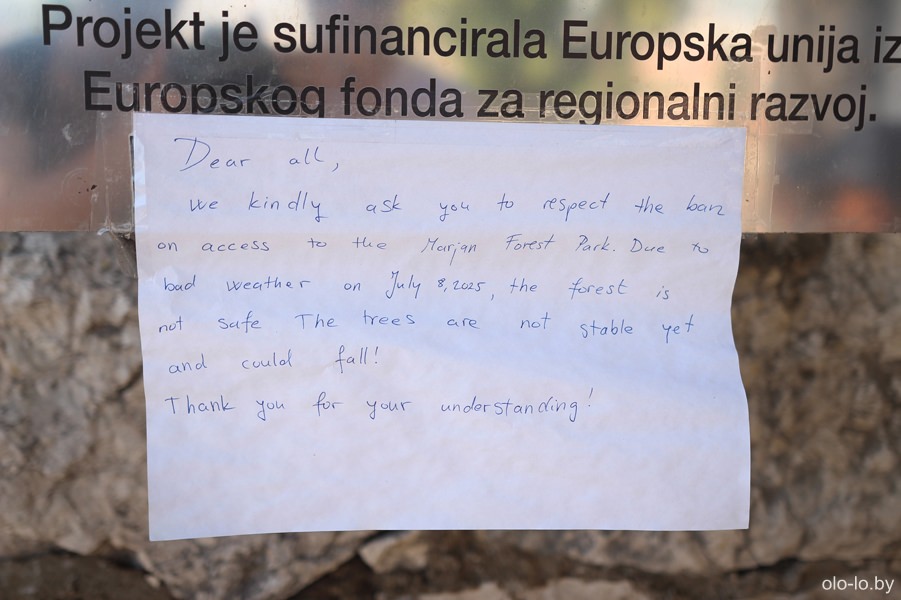 Projekt je sufinancirala Europska unija iz
Europskog fonda za regionalni razvoj.
Dear all,
we kindly ask you to respect the ban
on access to the Marjan Forest Park. Due to
bad weather on July 8, 2025, the forest is
not safe The trees are not stable yet
and could fall!
Thank you for your understanding!
olo-lo.by